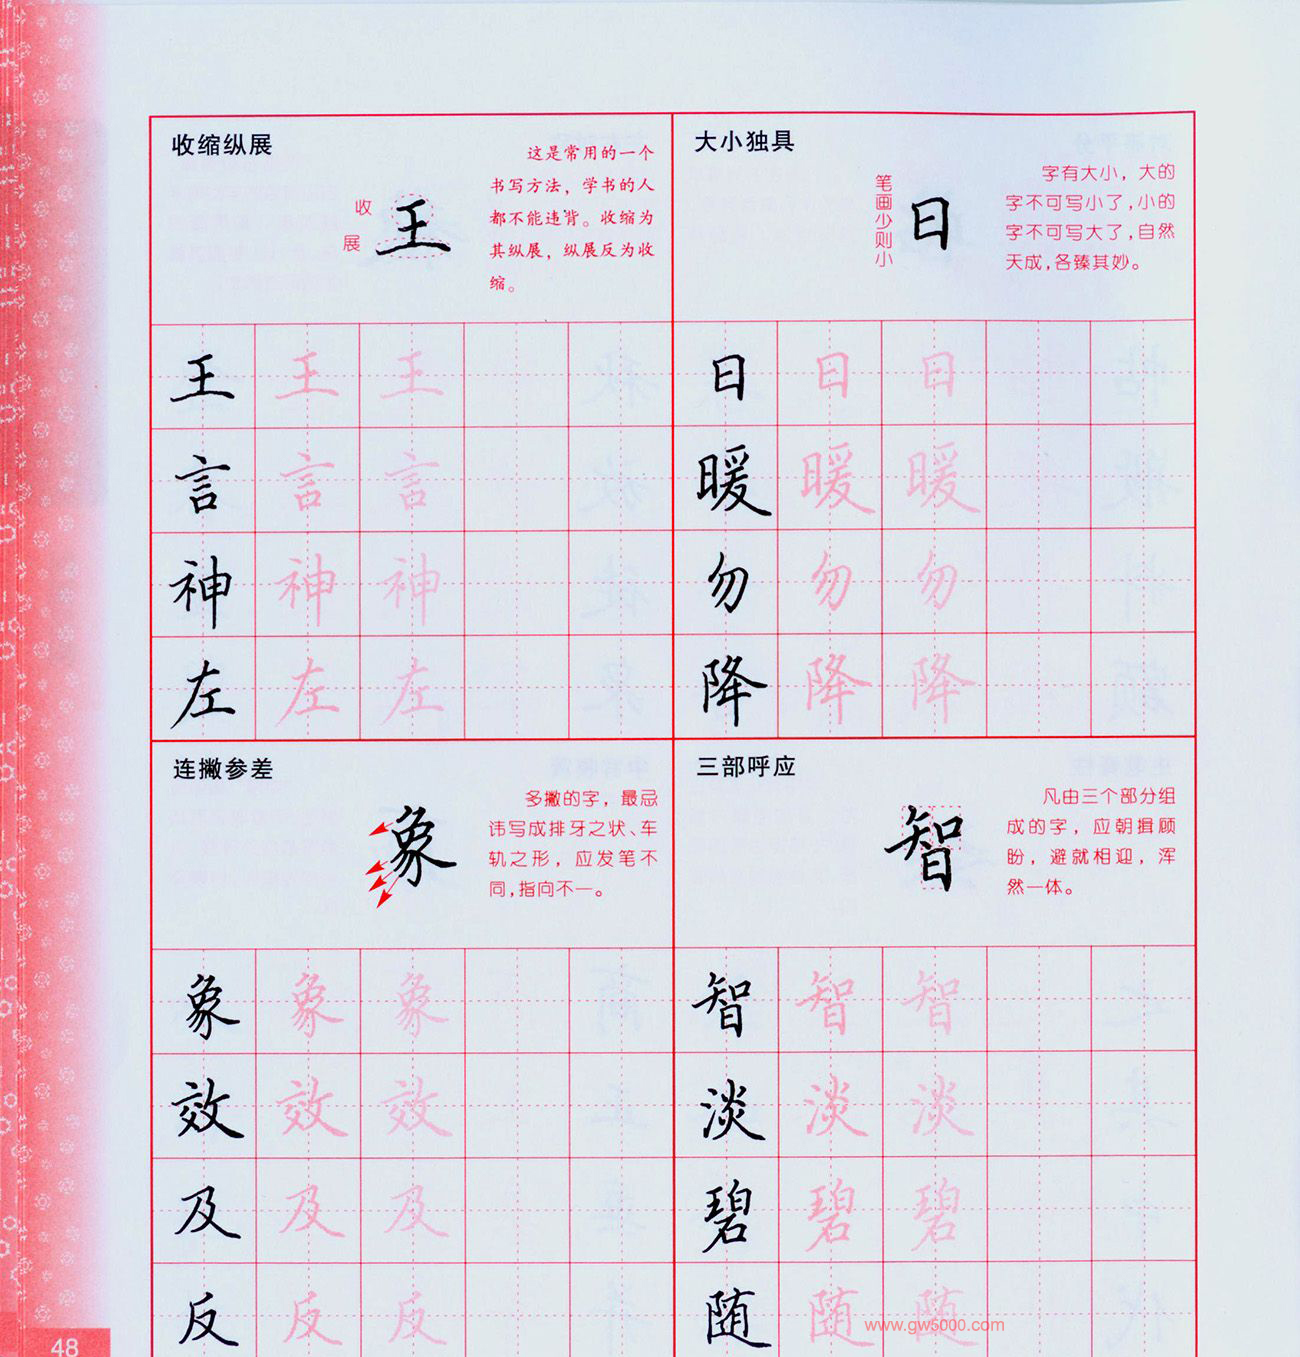 收缩纵展
收
展
王
这是常用的一个
书写方法，学书的人
都不能违背。收缩为
其纵展，纵展反为收
缩。
王 王 王
言 言 言
神 神 神
左 左 左
大小独具
笔画少则小
日
字有大小，大的
字不可写小了，小的
字不可写大了，自然
天成，各臻其妙。
日 日 日
暖 暖 暖
勿 勿 勿
降 降 降
连撇参差
象
多撇的字，最忌
讳写成排牙之状、车
轨之形，应发笔不
同，指向不一。
象 象 象
效 效 效
及 及 及
反 反 反
三部呼应
智
凡由三个部分组
成的字，应朝揖顾
盼，避就相迎，浑
然一体。
智 智 智
淡 淡 淡
碧 碧 碧
随 随 随
www.gw5000.com
48